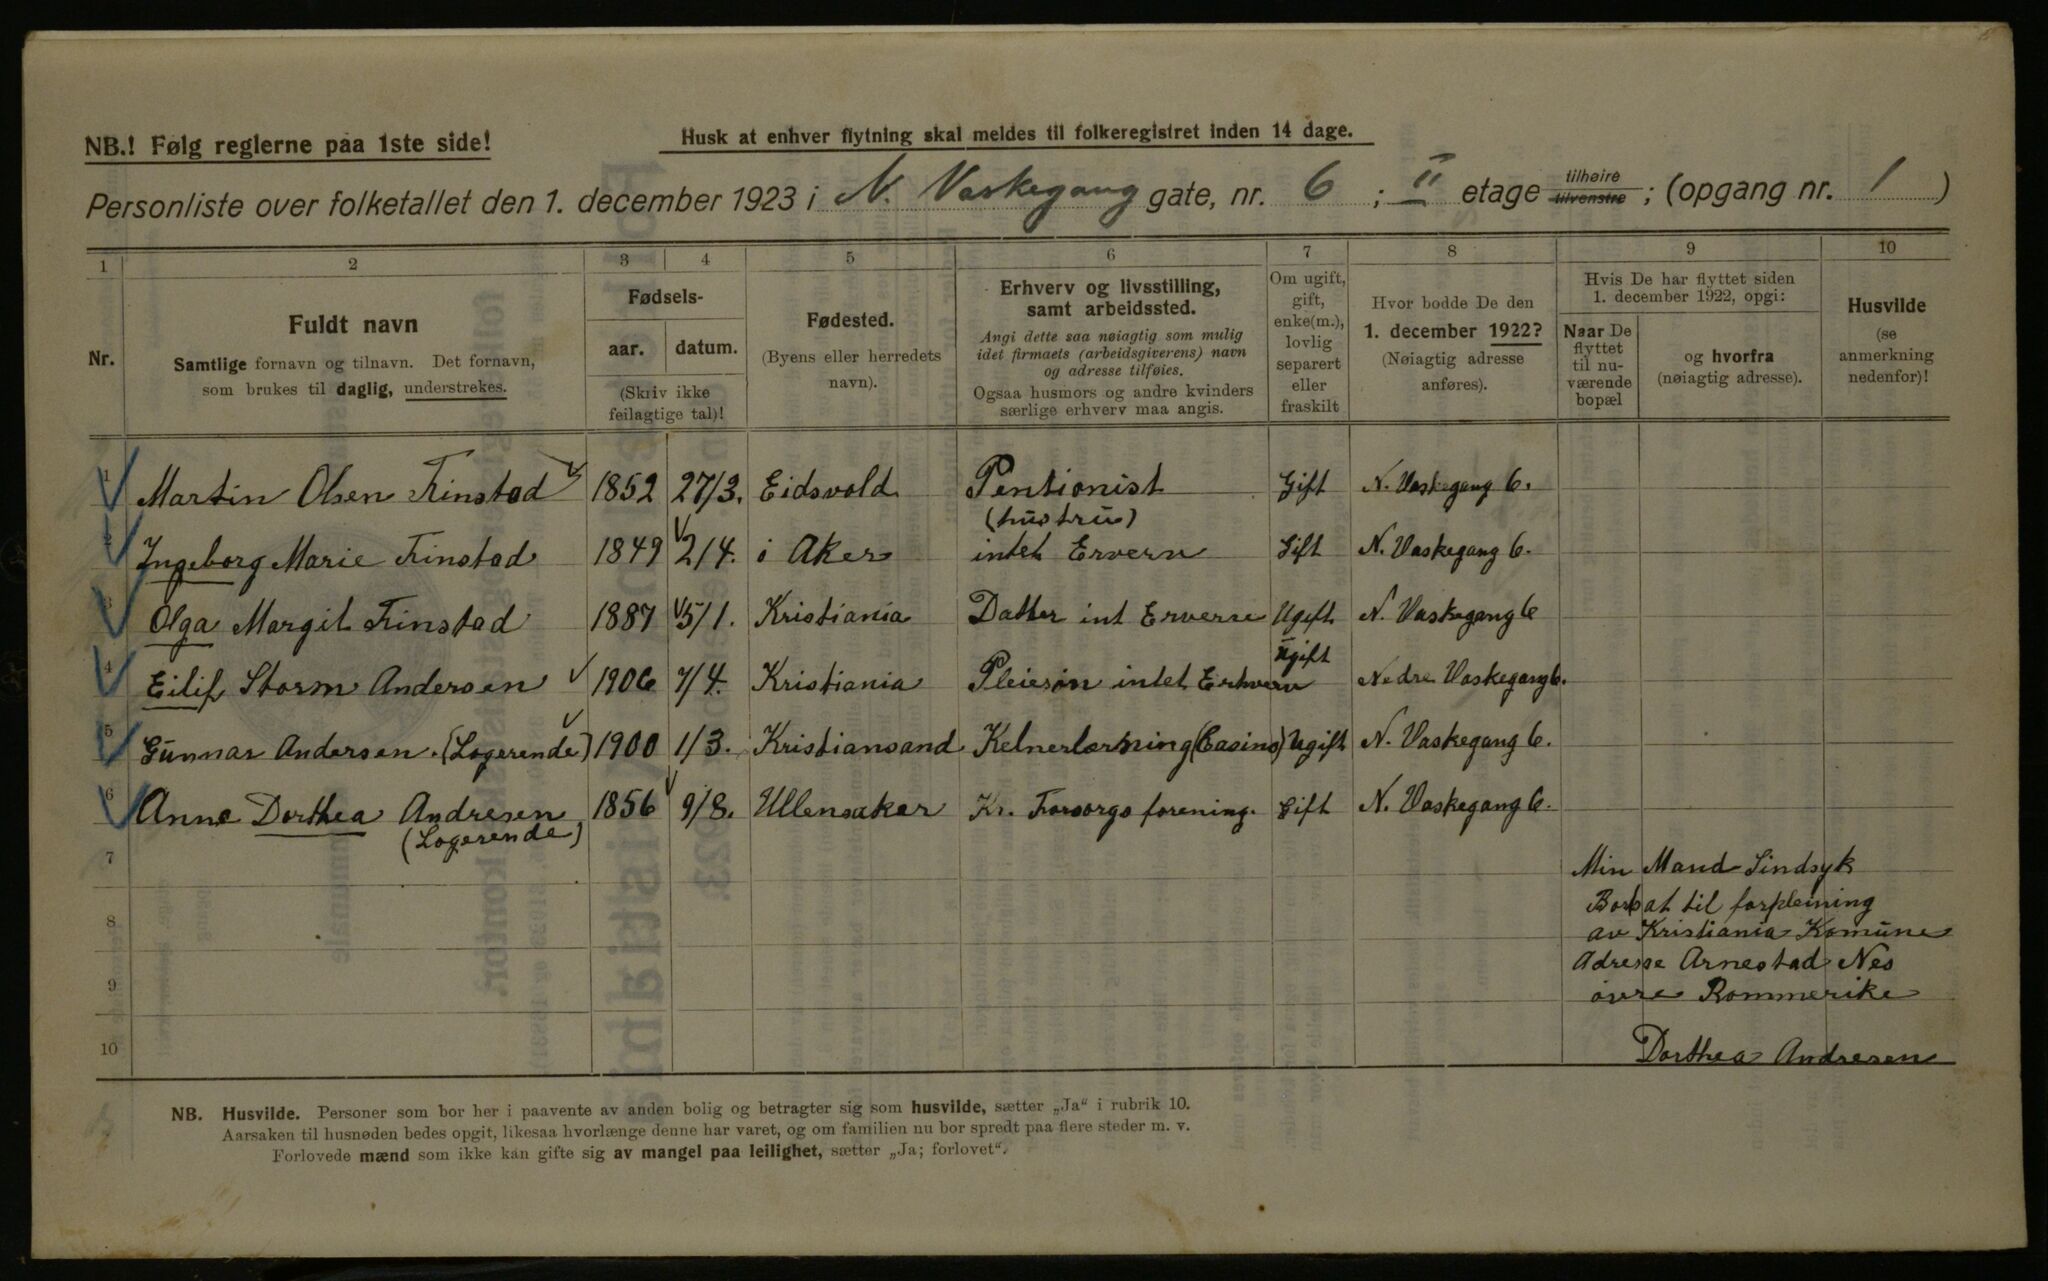 NB.! Følg reglerne paa 1ste side!
Husk at enhver flytning skal meldes til folkeregistret inden 14 dage.
Personliste over folketallet den 1. december 1923 i N. Vaskegang gate, nr. 6 ; II etage tilhøire tilvenstre ; (opgang nr. 1 )
1 2 3 4 5 6 7 8 9 10
Nr.
Fuldt navn
Samtlige fornavn og tilnavn. Det fornavn,
som brukes til daglig, understrekes.
Fødsels-
aar. datum.
(Skriv ikke
feilagtige tal)!
Fødested.
(Byens eller herredets
navn).
Erhverv og livsstilling,
samt arbeidssted.
Angi dette saa nøiagtig som mulig
idet firmaets (arbeidsgiverens) navn
og adresse tilføies.
Ogsaa husmors og andre kvinders
særlige erhverv maa angis.
Om ugift,
gift,
enke(m.),
lovlig
separert
eller
fraskilt
Hvor bodde De den
1. december 1922?
(Nøiagtig adresse
anføres).
Hvis De har flyttet siden
1. december 1922, opgi:
Naar De
flyttet
til nu-
værende
bopæl
og hvorfra
(nøiagtig adresse).
Husvilde
(se
anmerkning
nedenfor)!
1 Martin Olsen Finstad 1852 27/3. Eidsvold Pentionist Gift N. Vaskegang 6.
(hustru)
2 Ingeborg Marie Finstad 1849 2/4. i Aker intet Ervern Gift N. Vaskegang 6.
3 Olga Margit Finstad 1887 5/1. Kristiania Datter int Erverre Ugift N. Vaskegang 6
Ugift
4 Eilif Storm Andersen 1906 7/4. Kristiania Pleiesøn intet Erhverv Nedre Vaskegang 6.
5 Gunnar Andersen. (Logerende) 1900 1/3. Kristiansand Kelnerlærning (Casino) Ugift N. Vaskegang 6.
6 Anne Dorthea Andresen 1856 9/8. Ullensaker Kr. Forsorgsforening. Gift N. Vaskegang 6.
(Logerende)
7
Min Mand Sindsyk
8
Bortsat til forpleining
av Kristiania Komune
Adresse Arnestad Nes
9
øvre Rommerike
10
Dorthea Andresen
NB. Husvilde. Personer som bor her i paavente av anden bolig og betragter sig som husvilde, sætter „Ja“ i rubrik 10.
Aarsaken til husnøden bedes opgit, likesaa hvorlænge denne har varet, og om familien nu bor spredt paa flere steder m. v.
Forlovede mænd som ikke kan gifte sig av mangel paa leilighet, sætter „Ja; forlovet“.